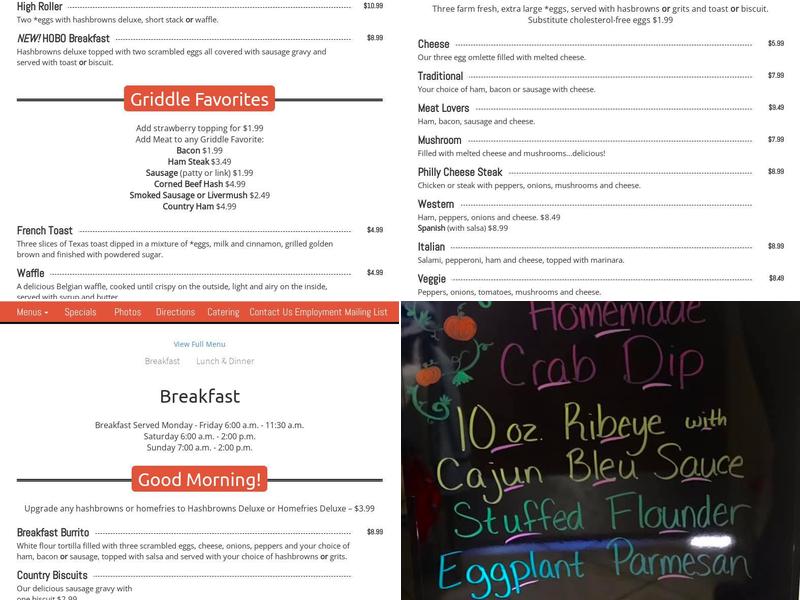 High Roller $10.99
Two *eggs with hashbrowns deluxe, short stack or waffle.
NEW! HOBO Breakfast $8.99
Hashbrowns deluxe topped with two scrambled eggs all covered with sausage gravy and
served with toast or biscuit.
Griddle Favorites
Add strawberry topping for $1.99
Add Meat to any Griddle Favorite:
Bacon $1.99
Ham Steak $3.49
Sausage (patty or link) $1.99
Corned Beef Hash $4.99
Smoked Sausage or Livermush $2.49
Country Ham $4.99
French Toast $4.99
Three slices of Texas toast dipped in a mixture of *eggs, milk and cinnamon, grilled golden
brown and finished with powdered sugar.
Waffle $4.99
A delicious Belgian waffle, cooked until crispy on the outside, light and airy on the inside,
served with syrup and butter.
Three farm fresh, extra large *eggs, served with hasbrowns or grits and toast or biscuit.
Substitute cholesterol-free eggs $1.99
Cheese $5.99
Our three egg omlette filled with melted cheese.
Traditional $7.99
Your choice of ham, bacon or sausage with cheese.
Meat Lovers $9.49
Ham, bacon, sausage and cheese.
Mushroom $7.99
Filled with melted cheese and mushrooms...delicious!
Philly Cheese Steak $8.99
Chicken or steak with peppers, onions, mushrooms and cheese.
Western
Ham, peppers, onions and cheese. $8.49
Spanish (with salsa) $8.99
Italian $8.99
Salami, pepperoni, ham and cheese, topped with marinara.
Veggie $8.49
Peppers, onions, tomatoes, mushrooms and cheese.
Menus Specials Photos Directions Catering Contact Us Employment Mailing List
View Full Menu
Breakfast Lunch & Dinner
Breakfast
Breakfast Served Monday - Friday 6:00 a.m. - 11:30 a.m.
Saturday 6:00 a.m. - 2:00 p.m.
Sunday 7:00 a.m. - 2:00 p.m.
Good Morning!
Upgrade any hashbrowns or homefries to Hashbrowns Deluxe or Homefries Deluxe – $3.99
Breakfast Burrito $8.99
White flour tortilla filled with three scrambled eggs, cheese, onions, peppers and your choice of
ham, bacon or sausage, topped with salsa and served with your choice of hashbrowns or grits.
Country Biscuits
Our delicious sausage gravy with
one biscuit $2.99
Homemade
Crab Dip
10 oz. Ribeye with
Cajun Bleu Sauce
Stuffed Flounder
Eggplant Parmesan